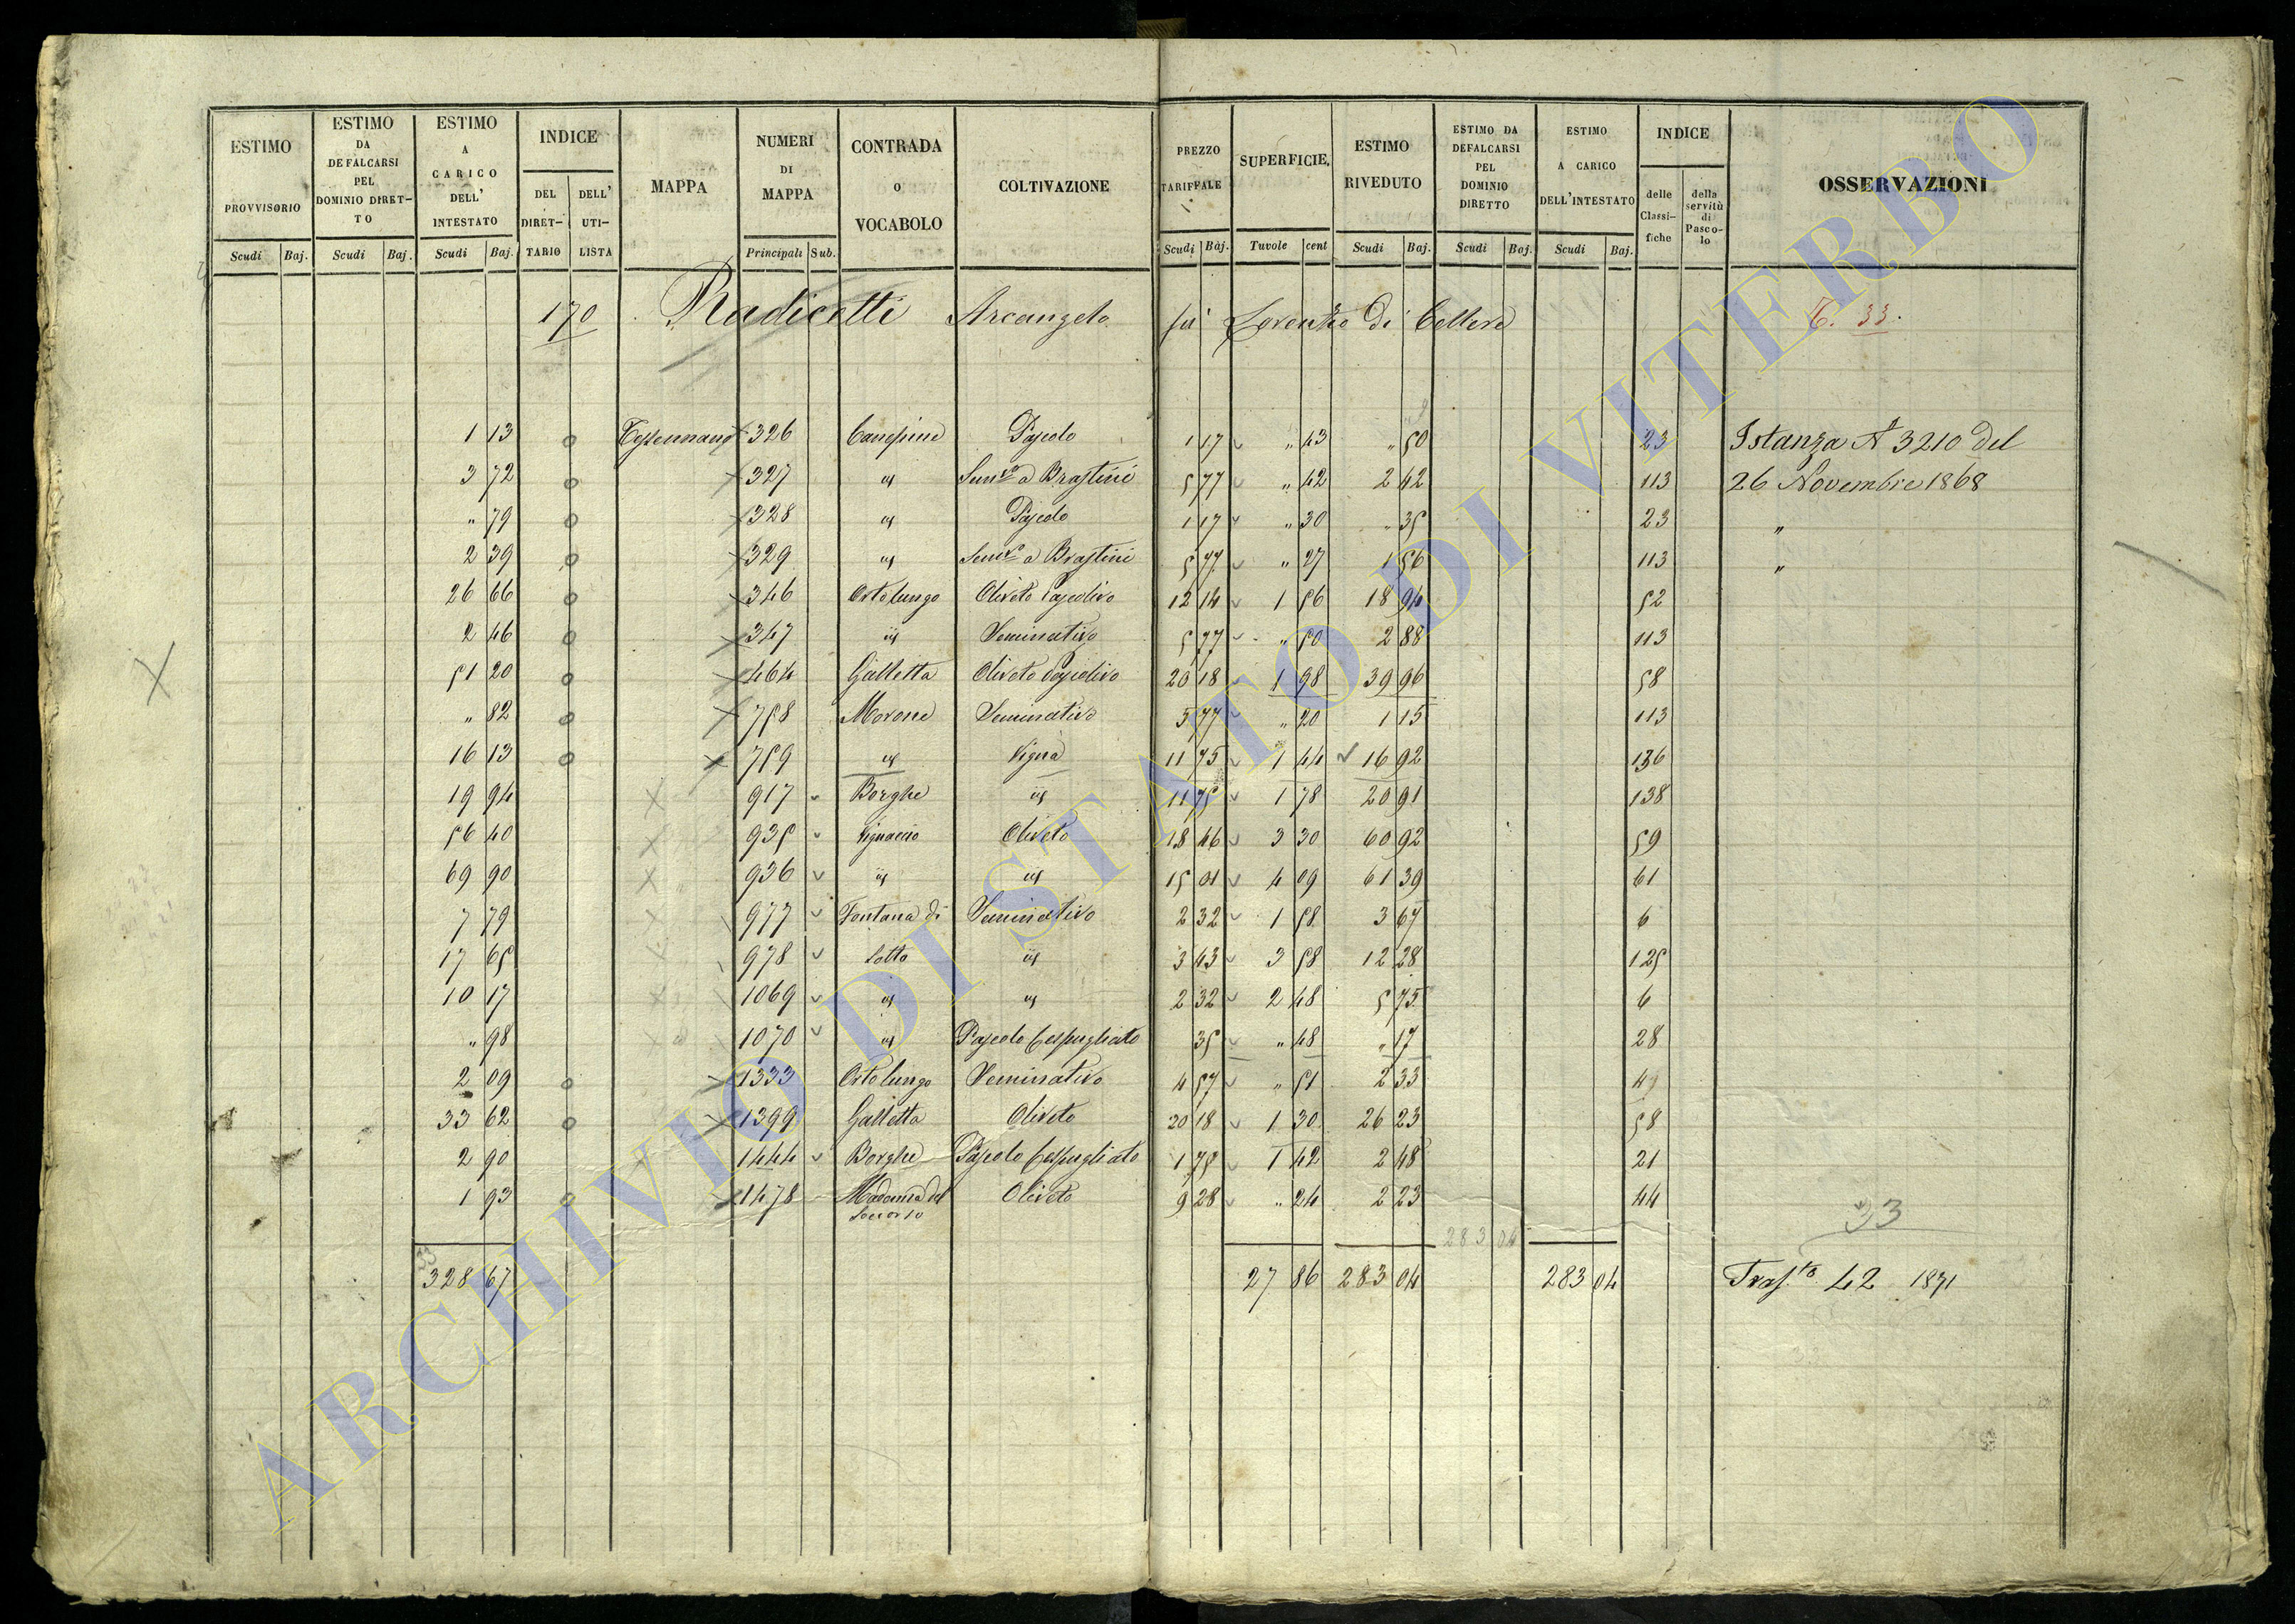 ESTIMO PROVVISORIO Scudi Baj.
ESTIMO DA DEFALCARSI PEL DOMINIO DIRET-TO Scudi Baj.
ESTIMO A CARICO DELL' INTESTATO Scudi Baj.
INDICE DEL DIRET-TARIO DELL' UTI-LISTA
MAPPA
NUMERI DI MAPPA Principali Sub.
CONTRADA O VOCABOLO
COLTIVAZIONE
PREZZO TARIFFALE Scudi Baj.
SUPERFICIE, Tavole cent
ESTIMO RIVEDUTO Scudi Baj.
ESTIMO DA DEFALCARSI PEL DOMINIO DIRETTO Scudi Baj.
ESTIMO A CARICO DELL'INTESTATO Scudi Baj.
INDICE delle Classi-fiche della servitù di Pasco-lo
OSSERVAZIONI
170 Radicetti Arcangelo fu Lorenzo di Cellere T. 33.
1 13 o Tessennano 326 Canespine Pascolo 1 17 " 43 " 50 23 Istanza N 3210 del
3 72 o 327 id Semvo a Brastini 5 77 " 42 2 42 113 26 Novembre 1868
" 79 o 328 id Pascolo 1 17 " 30 " 35 23 "
2 39 o 329 id Semvo a Brastini 5 77 " 27 1 56 113 "
26 66 o 346 Ortolungo Oliveto Pascolivo 12 14 1 56 18 94 52
2 46 o 347 id Seminativo 5 77 " 50 2 88 113
51 20 o 464 Galletta Oliveto Pascolivo 20 18 1 98 39 96 58
" 82 o 758 Morone Seminativo 5 77 " 20 1 15 113
16 13 o 759 id Vigna 11 75 1 44 16 92 136
19 94 917 Borghe id 11 75 1 78 20 91 138
56 40 935 Vignaccio Oliveto 18 46 3 30 60 92 59
69 90 936 id id 15 01 4 09 61 39 61
7 79 977 Fontana di Seminativo 2 32 1 58 3 67 6
17 65 978 Sotto id 3 43 3 58 12 28 125
10 17 1069 id id 2 32 2 48 5 75 6
" 98 1070 id Pascolo Cespugliato 35 " 48 " 17 28
2 09 o 1333 Ortolungo Seminativo 4 57 " 51 2 33 49
33 62 o 1399 Galletta Oliveto 20 18 1 30 26 23 58
2 90 1444 Borghe Pascolo Cespugliato 1 75 1 42 2 48 21
1 93 o 1478 Madonna del Soccorso Oliveto 9 28 " 24 2 23 44
33
283 04
33
328 67 27 86 283 04 283 04 Trasto 42 1871
ARCHIVIO DI STATO DI VITERBO